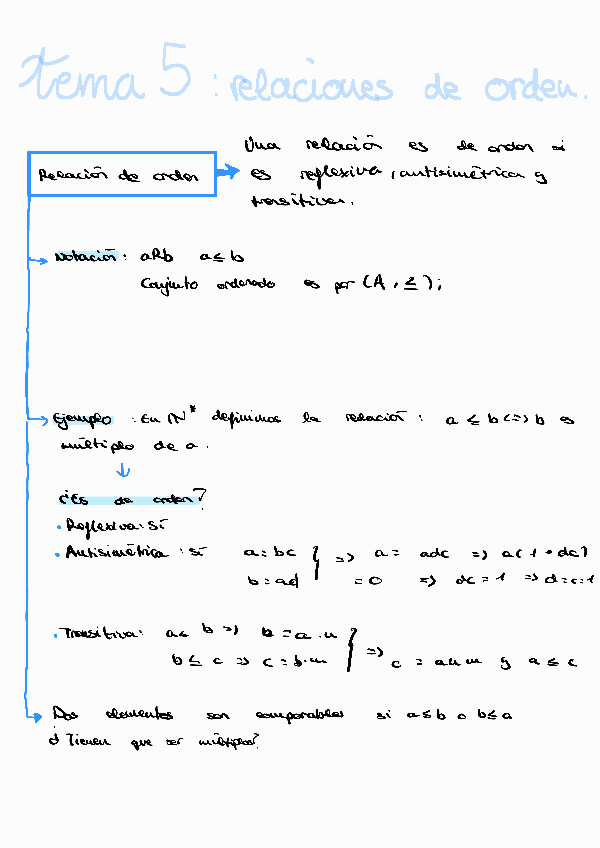 tema 5: relaciones de orden.
Una relación es de orden si
Relación de orden
es reflexiva, antisimétrica y
transitiva.
Notación: aRb a ≤ b
Conjunto ordenado es par (A, ≤);
Ejemplo: En IN* definimos la relación: a ≤ b <=> b es
múltiplo de a.
¿Es de orden?
• Reflexiva: sí
• Antisimétrica: sí a = bc } => a = adc => a(1 - dc)
b = ad = 0 => dc = 1 => d = c = 1
• Transitiva: a ≤ b => b = a·n
b ≤ c => c = b·m } => c = anm y a ≤ c
Dos elementos son comparables si a ≤ b o b ≤ a
¿Tienen que ser múltiplos?